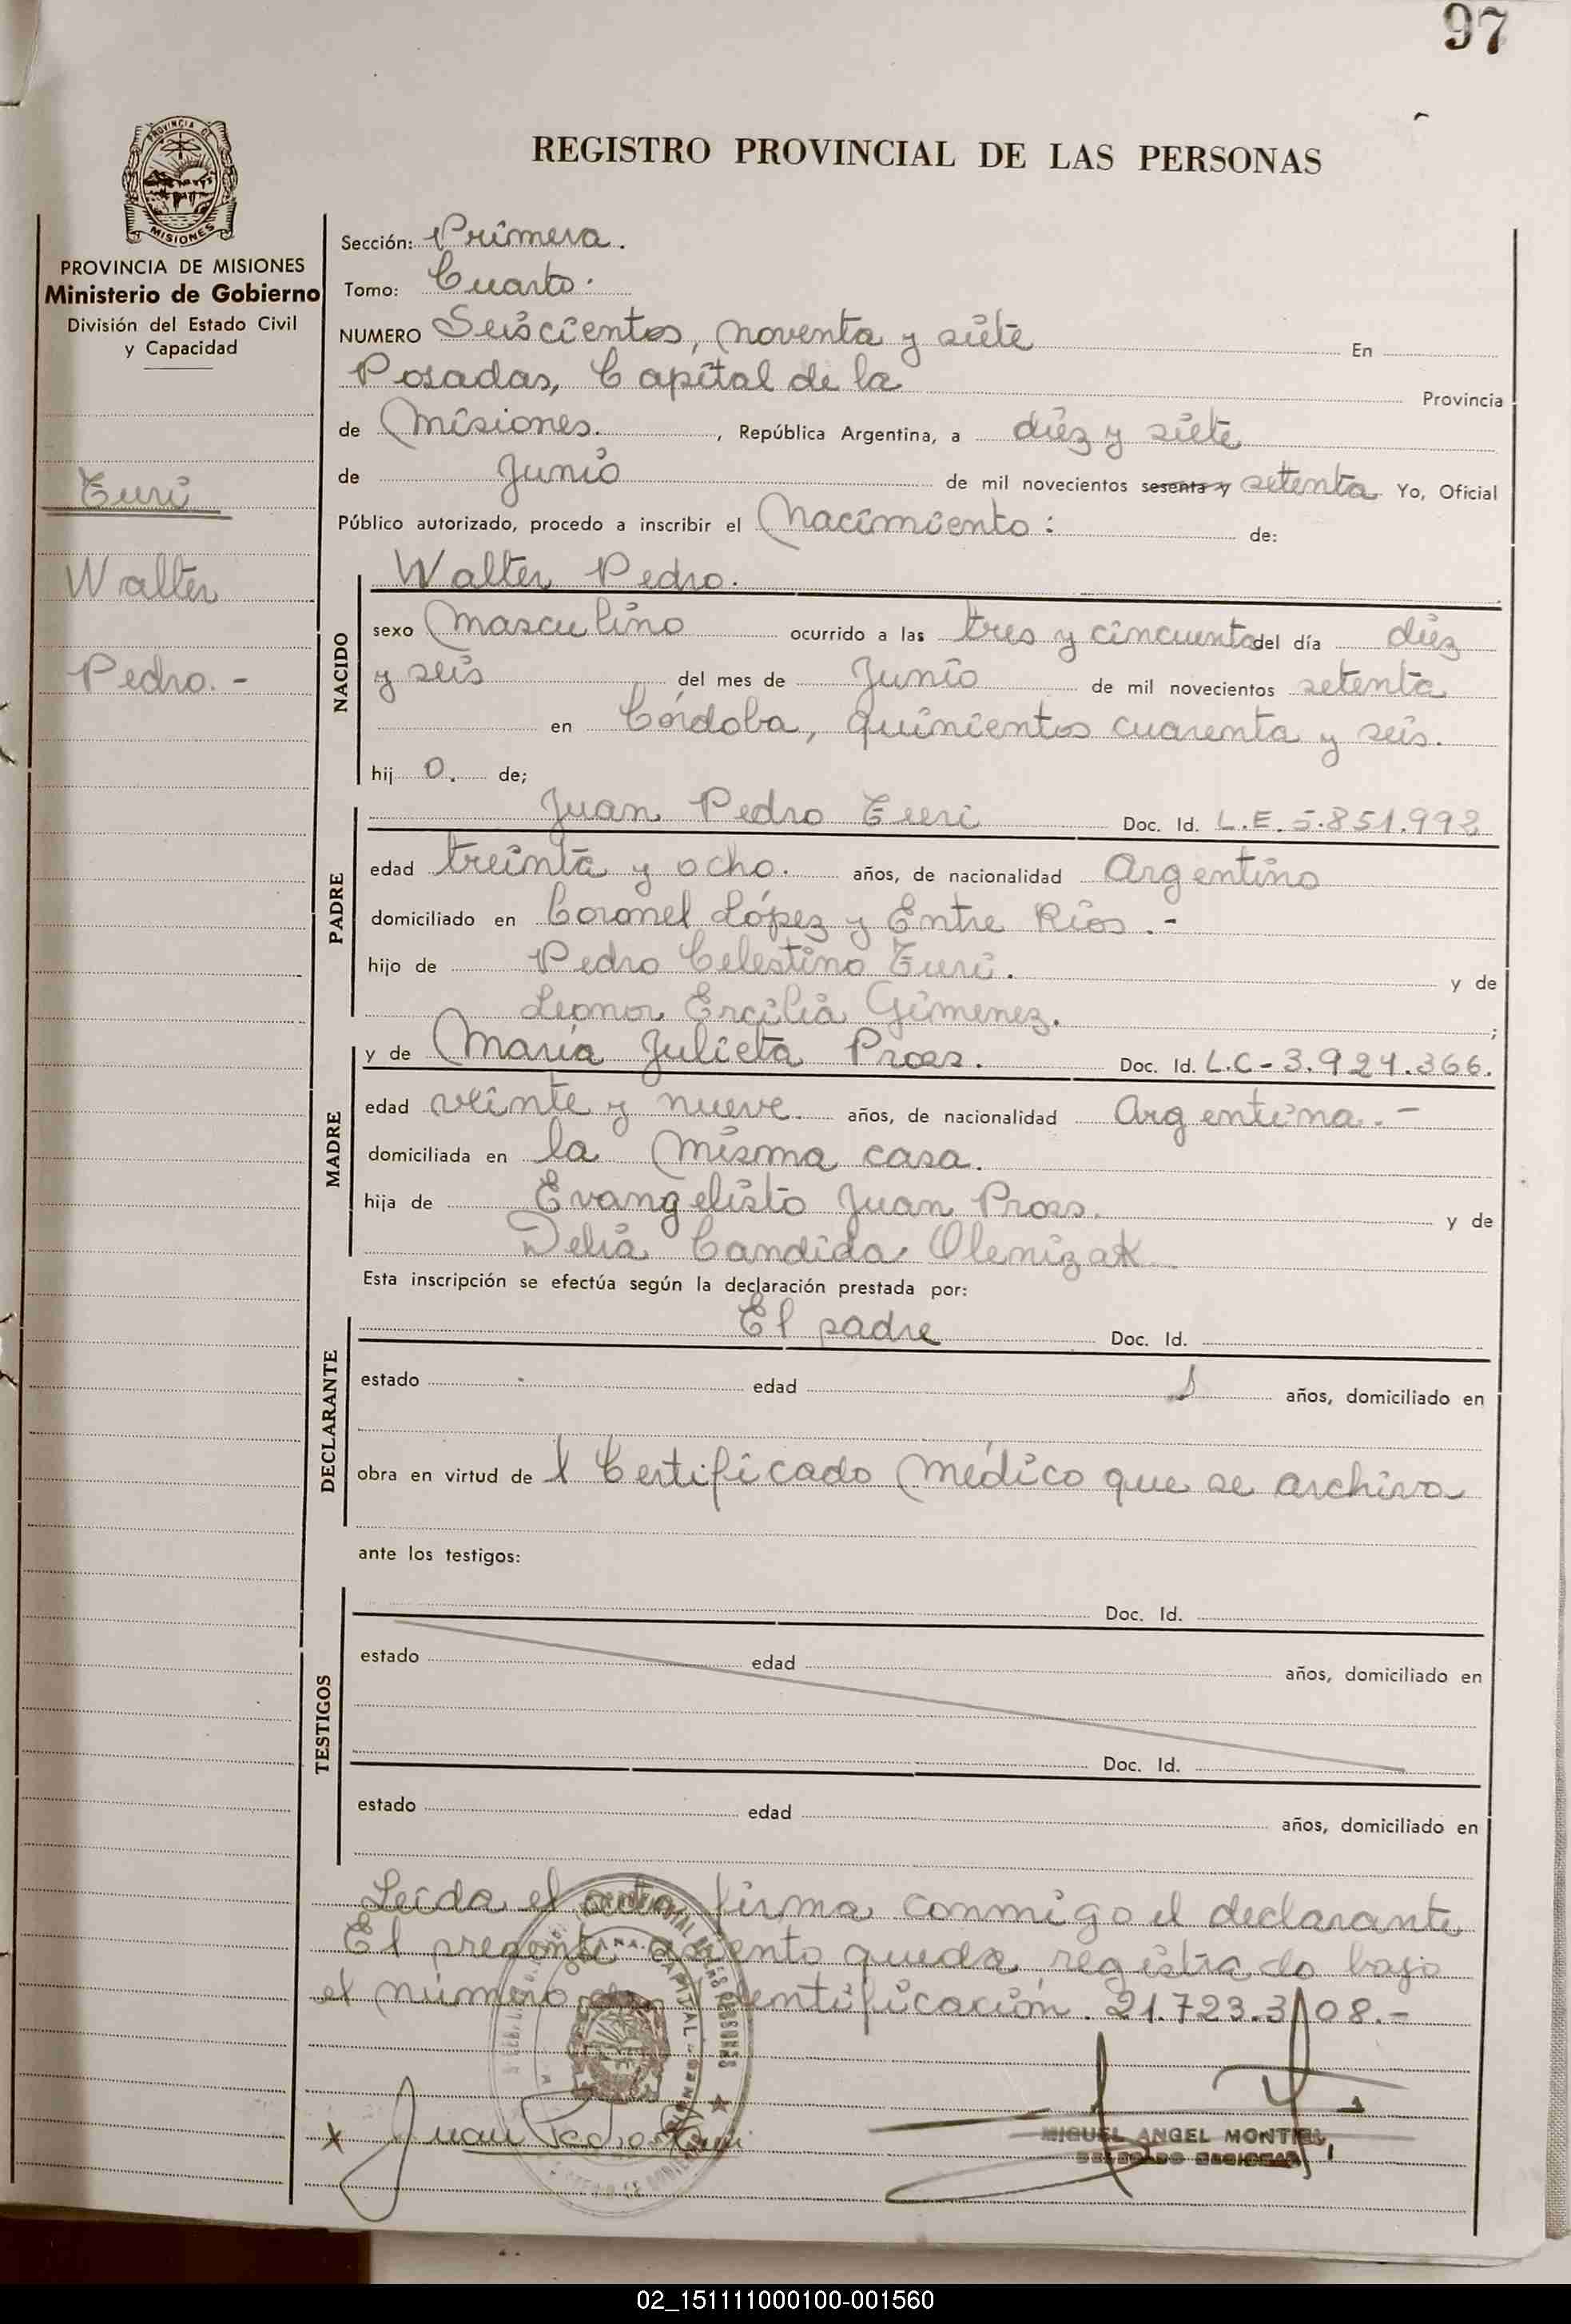 97
PROVINCIA DE
MISIONES
REGISTRO PROVINCIAL DE LAS PERSONAS
PROVINCIA DE MISIONES
Ministerio de Gobierno
División del Estado Civil
y Capacidad
Turi
Walter
Pedro.-
Sección: Primera.
Tomo: Cuarto.
NUMERO Seiscientos, noventa y siete En
Posadas, Capital de la Provincia
de Misiones. , República Argentina, a diez y siete
de Junio de mil novecientos sesenta y setenta Yo, Oficial
Público autorizado, procedo a inscribir el Nacimiento: de:
Walter Pedro.
NACIDO
sexo Masculino ocurrido a las tres y cincuenta del día diez
y seis del mes de Junio de mil novecientos setenta
en Córdoba, quinientos cuarenta y seis.
hij o. de;
PADRE
Juan Pedro Turi Doc. Id. L.E. 5.851.992
edad treinta y ocho. años, de nacionalidad Argentino
domiciliado en Coronel López y Entre Ríos.-
hijo de Pedro Celestino Turi. y de
Leonor Ercilia Gimenez. ;
MADRE
y de María Julieta Pross. Doc. Id. L.C-3.924.366.
edad veinte y nueve. años, de nacionalidad Argentina.-
domiciliada en la misma casa.
hija de Evangelisto Juan Pross. y de
Delia Candida Olenizak
Esta inscripción se efectúa según la declaración prestada por:
DECLARANTE
El padre Doc. Id.
estado edad años, domiciliado en
obra en virtud de l Certificado Médico que se archiva
ante los testigos:
TESTIGOS
Doc. Id.
estado edad años, domiciliado en
Doc. Id.
estado edad años, domiciliado en
Leída el acta, firma conmigo el declarante
El presente asiento queda registrado bajo
el número de identificación. 21.723.308.-
Juan Pedro Turi
MIGUEL ANGEL MONTIEL
DELEGADO REGIONAL
02_151111000100-001560